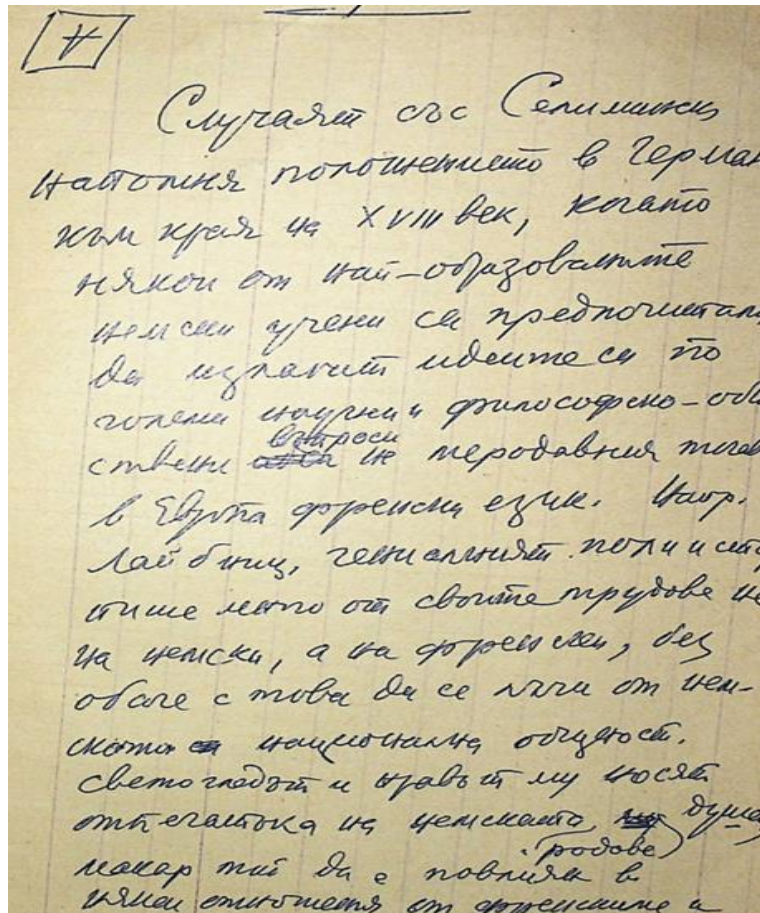 A
Случаят със Селимински
напомня положението в Герман
към края на XVIII век, когато
някои от най-образованите
немски учени са предпочитали
да излагат идеите си по
големи научни и философско-общ
ствени въпроси на меродавния тогав
в Европа френски език. Напр.
Лайбниц, гениалният полиист
пише много от своите трудове не
на немски, а на френски, без
обаче с това да се лъчи от нем-
ската национална общност.
светогледът и нравът му носят
отпечатъка на немската душа,
родове
макар той да е повлиян в
някои отношения от френските и